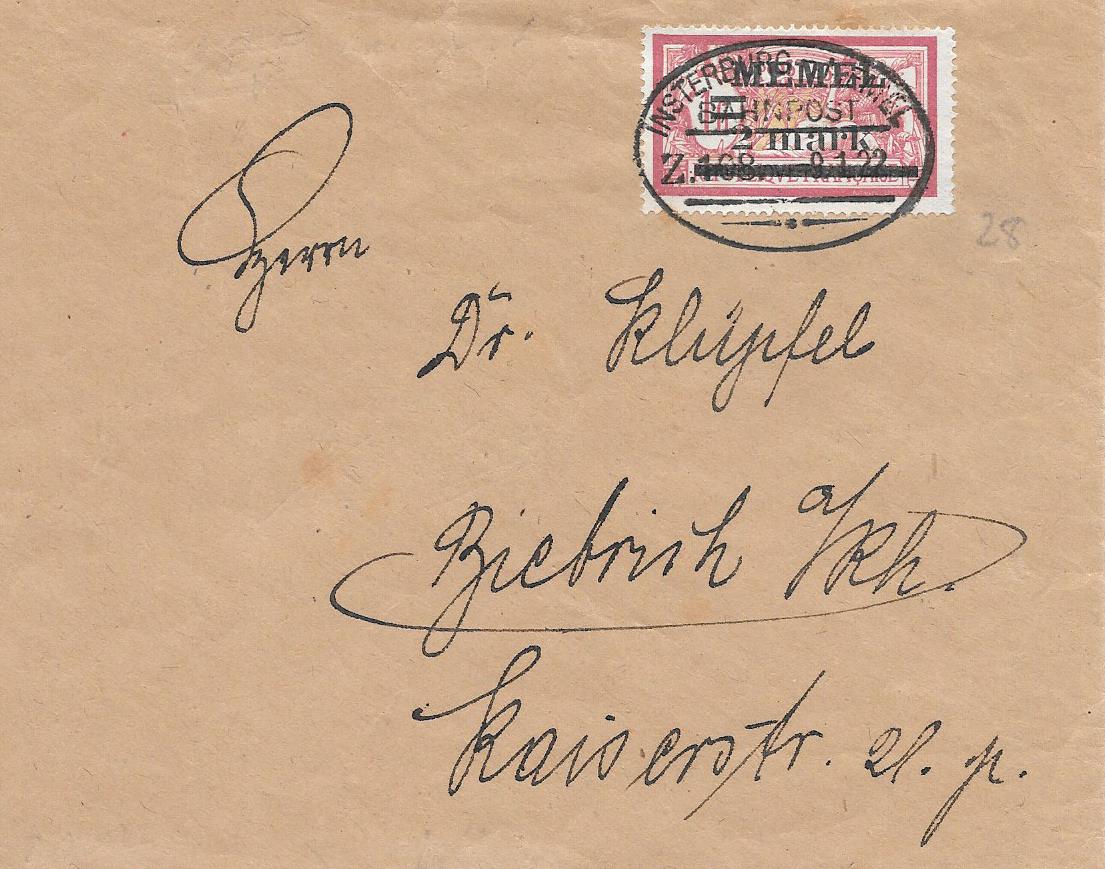 MEMEL
INSTERBURG - MEMEL
BAHNPOST
2 mark
Z.168. 9.1.22
28
Herrn
Dr. Klüpfel
Biebrich a/Rh.
Kaiserstr. 21. p.